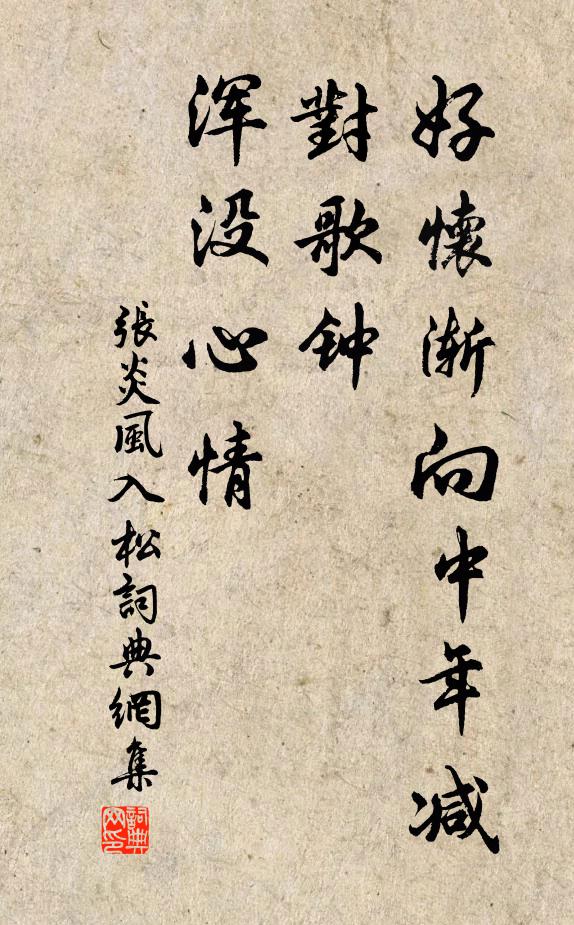 好懷渐向中年减
對歌钟
浑没心情
張炎風入松詞典網集
詞典网印